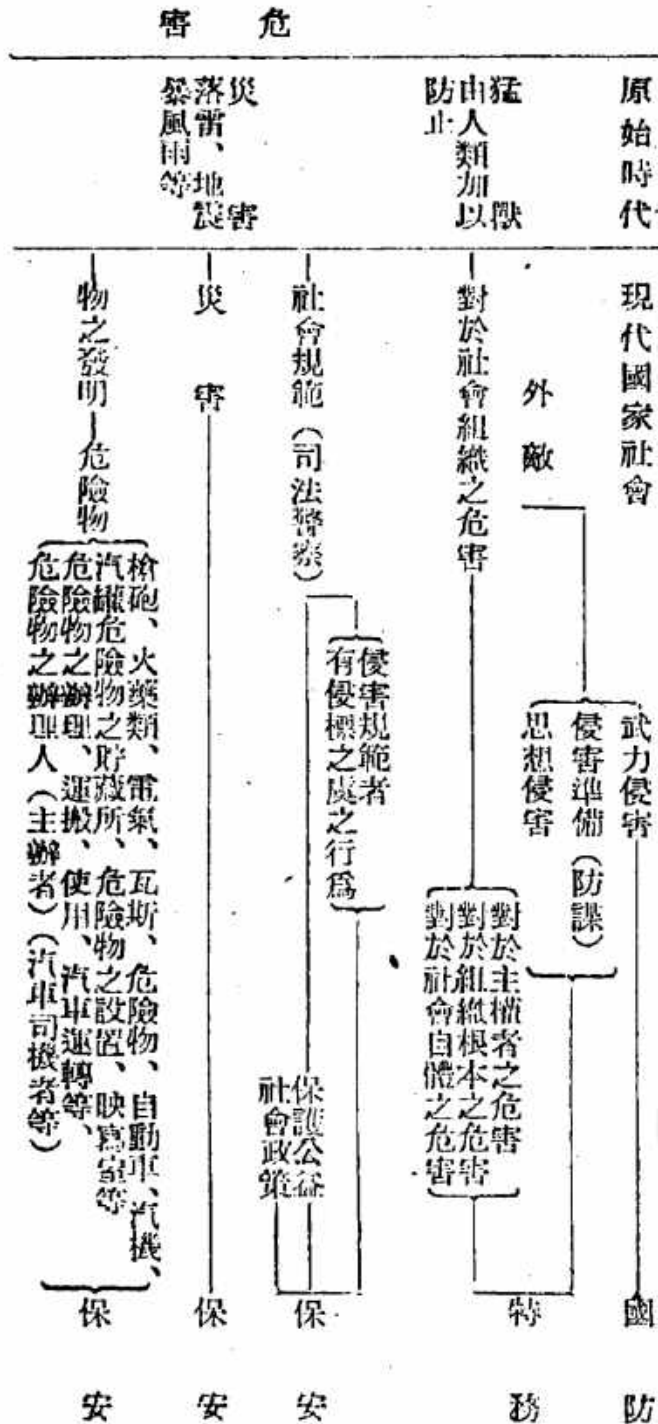 危害
原始時代
猛獸
由人類加以
防止
災害
落雷、地震
暴風雨等
現代國家社會
外敵
武力侵害
侵害準備(防諜)
思想侵害
國防
對於社會組織之危害
對於主權者之危害
對於組織根本之危害
對於社會自體之危害
特務
社會規範(司法警察)
侵害規範者
有侵標之處之行爲
保護公益
社會政策
保安
災害
保安
物之發明—危險物
槍砲、火藥類、電氣、瓦斯、危險物、自動車、汽機、
汽罐危險物之貯藏所、危險物之設置、映寫室等
危險物之辦理、運搬、使用、汽車運轉等、
危險物之辦理人(主辦者)(汽車司機者等)
保安